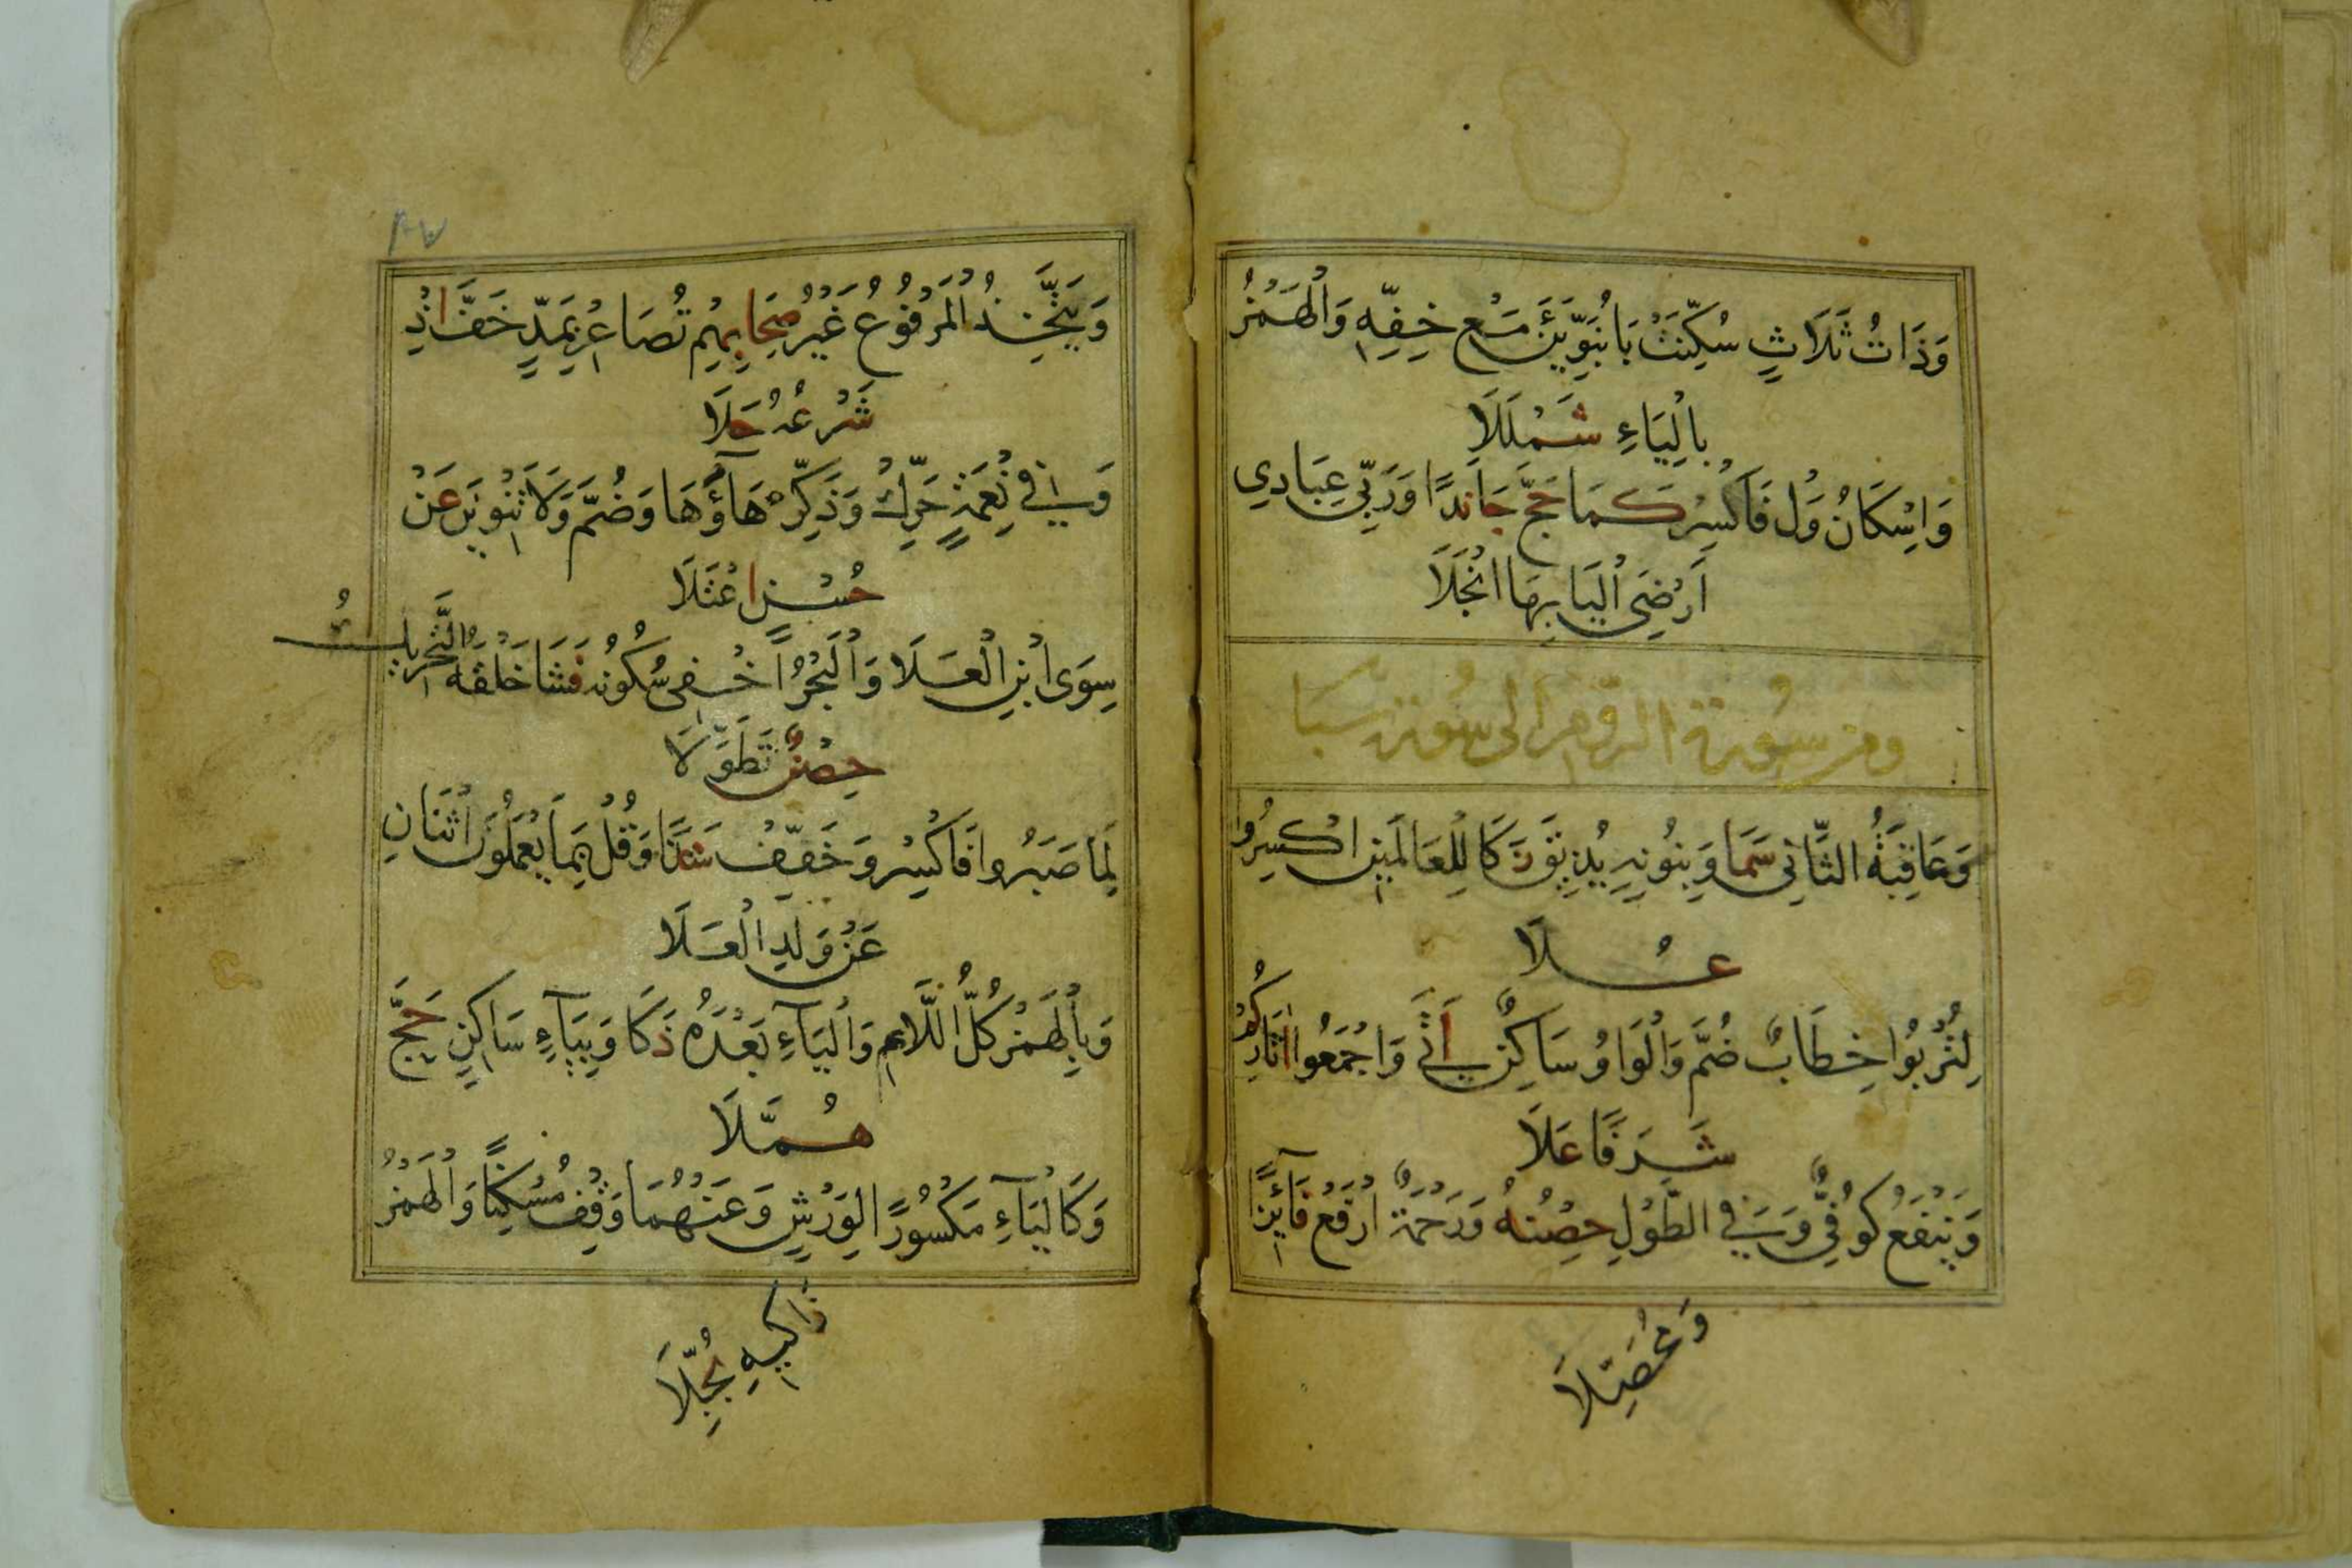 وَذَاتُ ثَلَاثٍ سُكِّنَتْ بَا نُبَوِّيَنَّ مَعْ خِفِّهِ وَالْهَمْزُ
بِالْيَاءِ شَمْلَلَا
وَإِسْكَانُ وَلْ فَاكْسِرْ كَمَا حَجَّ جَا نَدًا وَرَبِّي عِبَادِي
أَرْضِيَ الْيَا بِهَا انْجَلَا
ومن سورة الروم الى سورة سبا
وَعَاقِبَةُ الثَّانِي سَمَا وَبِنُونِهِ يُذِيقَ زَكَا لِلْعَالَمِينَ اكْسِرُوا
عُلَا
لِتُرْبُوا خِطَابٌ ضُمَّ وَالْوَاوُ سَاكِنٌ أَتَى وَاجْمَعُوا آثَارِ كَمْ
شَرَفًا عَلَا
وَيَنْفَعُ كُوفِيٌّ وَفِي الطَّوْلِ حِصْنُهُ وَرَحْمَةً ارْفَعْ فَائِزًا
وَمُحَصِّلَا
٨٧
وَيَتَّخِذُ الْمَرْفُوعُ غَيْرُ صِحَابِهِمْ تُصَاعِرْ بِمَدٍّ خَفَّ إِذْ
شَرْعُهُ حَلَا
وَفِي نِعْمَةٍ حَرِّكْ وَذُكِّرَ هَاؤُهَا وَضُمَّ وَلَا تَنْوِينَ عَنْ
حُسْنٍ اعْتَلَا
سِوَى ابْنِ الْعَلَا وَالْبَحْرُ أُخْفِي سُكُونُهُ فَشَا خَلْقَهُ التَّحْرِيكُ
حِصْنٌ تَطَوَّلَا
لِمَا صَبَرُوا فَاكْسِرْ وَخَفِّفْ شَذًا وَقُلْ بِمَا يَعْمَلُونَ اثْنَانِ
عَنْ وَلَدِ الْعَلَا
وَبِالْهَمْزِ كُلُّ اللَّاءِ وَالْيَاءِ بَعْدَهُ ذَكَا وَبِيَاءٍ سَاكِنٍ حَجَّ
هُمَّلَا
وَكَالْيَاءِ مَكْسُورًا لِوَرْشٍ وَعَنْهُمَا وَقِفْ مُسْكِنًا وَالْهَمْزُ
زَاكِيهِ بُجِّلَا